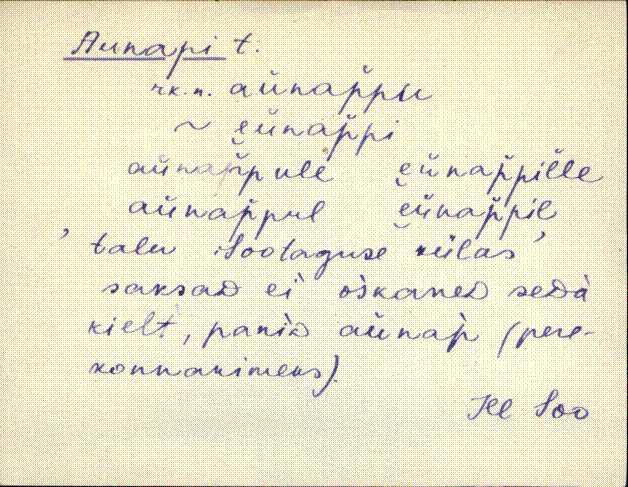 Aunapi t.
rk.n. aùnap̆pu
~ eùnap̆pi
aùnap̆pule eùnap̆pil̆le
aùnap̆pul eùnap̆pil
' talu Sootaguse külas '
saksaD ei òskaneD seDà
kielt, paniD aùnap̀ (pere-
konnanimeks).
Kl Soo